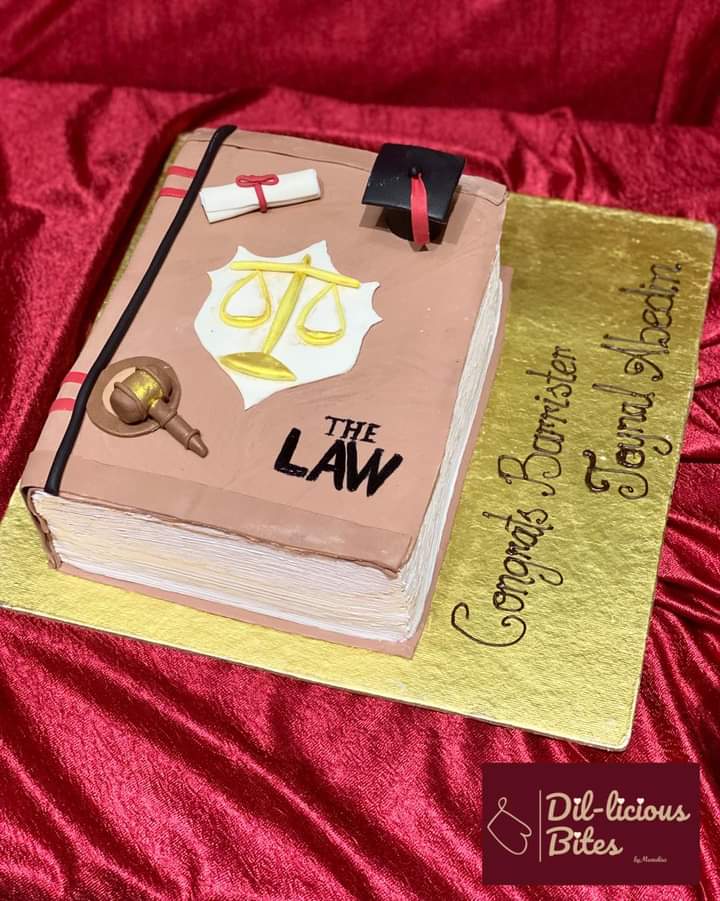 THE
LAW
Congrats Barrister
Toynal Abedin
Dil-licious
Bites